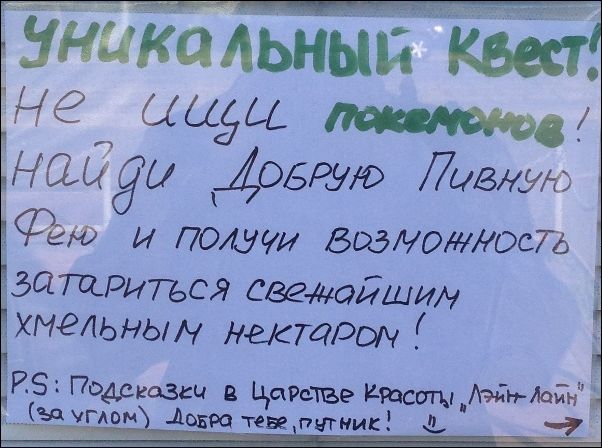 УНИКАЛЬНЫЙ* КВЕСТ!
НЕ ИЩИ ПОКЕМОНОВ!
НАЙДИ ДОБРУЮ ПИВНУЮ
ФЕЮ И ПОЛУЧИ ВОЗМОЖНОСТЬ
ЗАТАРИТЬСЯ СВЕЖАЙШИМ
ХМЕЛЬНЫМ НЕКТАРОМ!
P.S: ПОДСКАЗКИ В ЦАРСТВЕ КРАСОТЫ „ЛЭЙН-ЛАЙН"
(ЗА УГЛОМ) ДОБРА ТЕБЕ, ПУТНИК! :) →